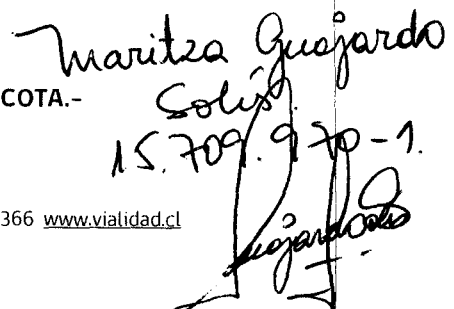 Maritza Guajardo
COTA.- Solís
15.709.970-1.
366 www.vialidad.cl